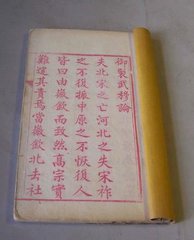 御製武穆論
夫北宋之亡河北之失宋祚
之不復振中原之不恢復人
皆曰由徽欽而致然高宗實
難逭其責焉當徽欽北去社